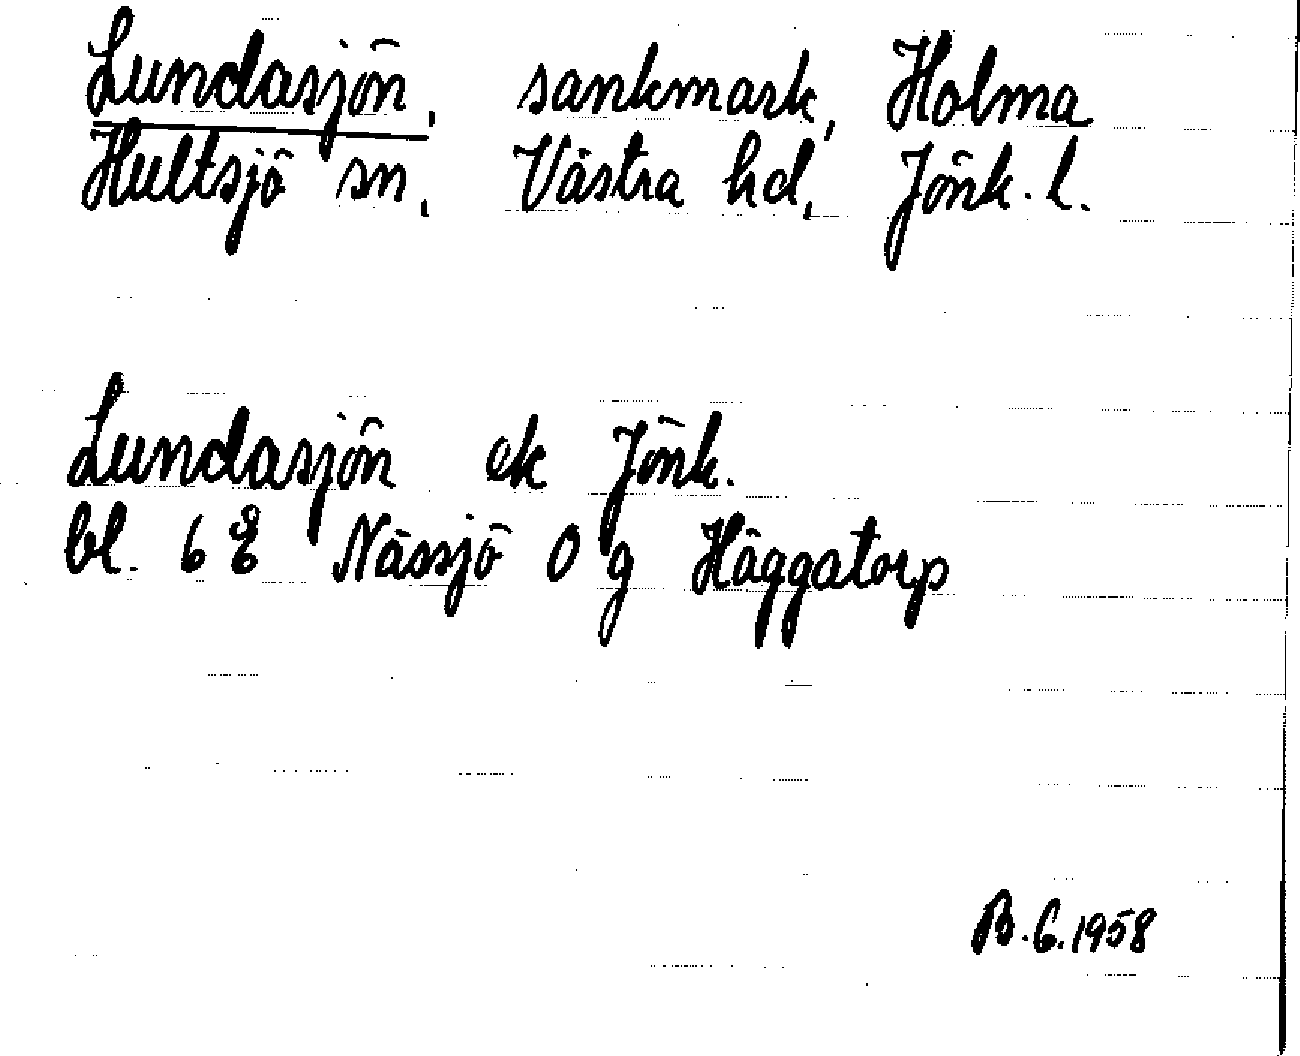 Lundasjön, sankmark, Holma
Hultsjö sn, Västra hd, Jönk. l.
Lundasjön ek Jönk.
bl. 6 E Nässjö 0 g Häggatorp
B.G.1958